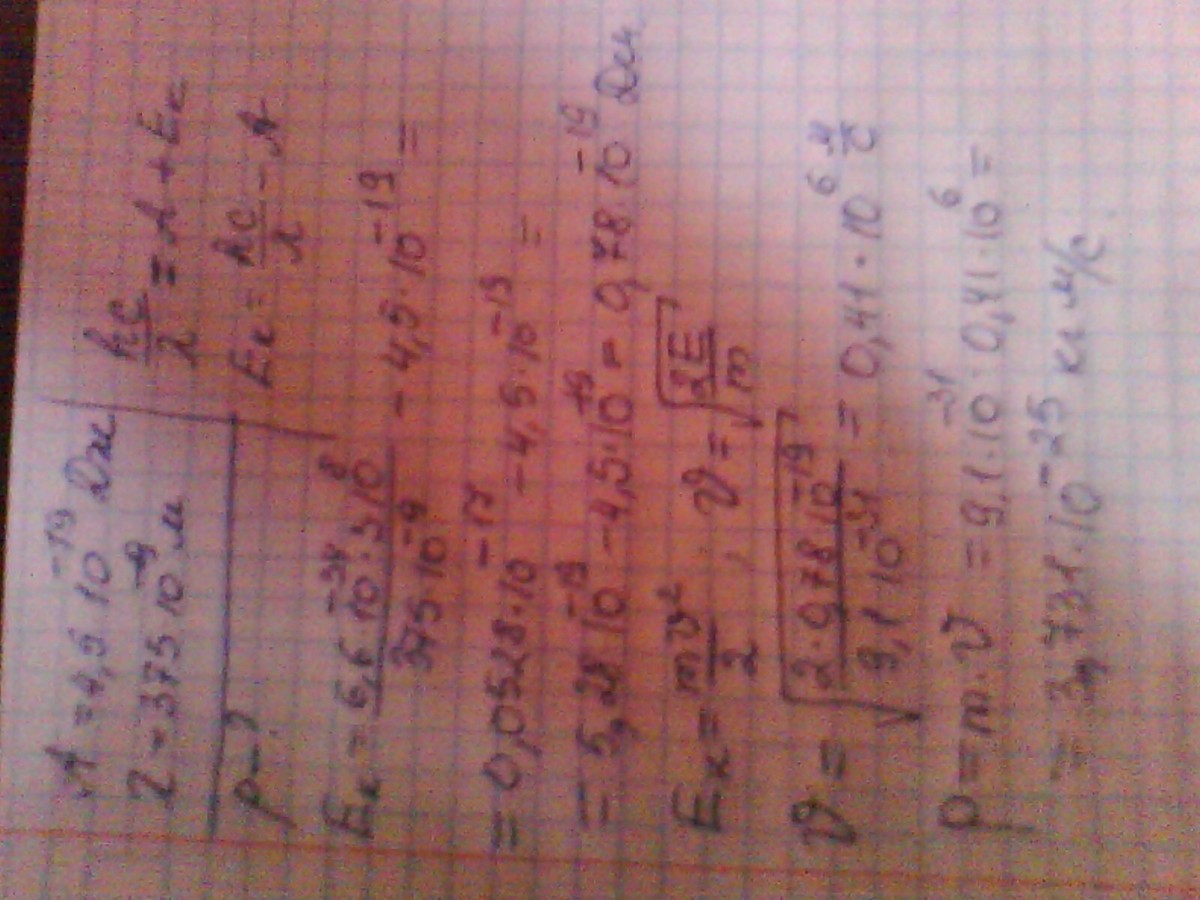 A = 4,5 10^-19 Дж
λ = 375 10^-9 м
p - ?
hc/λ = A + Eк
Eк = hc/λ - A
Eк = 6,6 10^-34 · 3 10^8 / 375 10^-9 - 4,5 · 10^-19 =
= 0,0528 · 10^-17 - 4,5 · 10^-19 =
= 5,28 10^-19 - 4,5 · 10^-19 = 0,78 · 10^-19 Дж
Eк = mv²/2 , v = √(2E/m)
v = √(2 · 0,78 10^-19 / 9,1 10^-31) = 0,41 · 10^6 м/с
p = m · v = 9,1 · 10^-31 · 0,41 · 10^6 =
= 3,731 · 10^-25 кг м/с